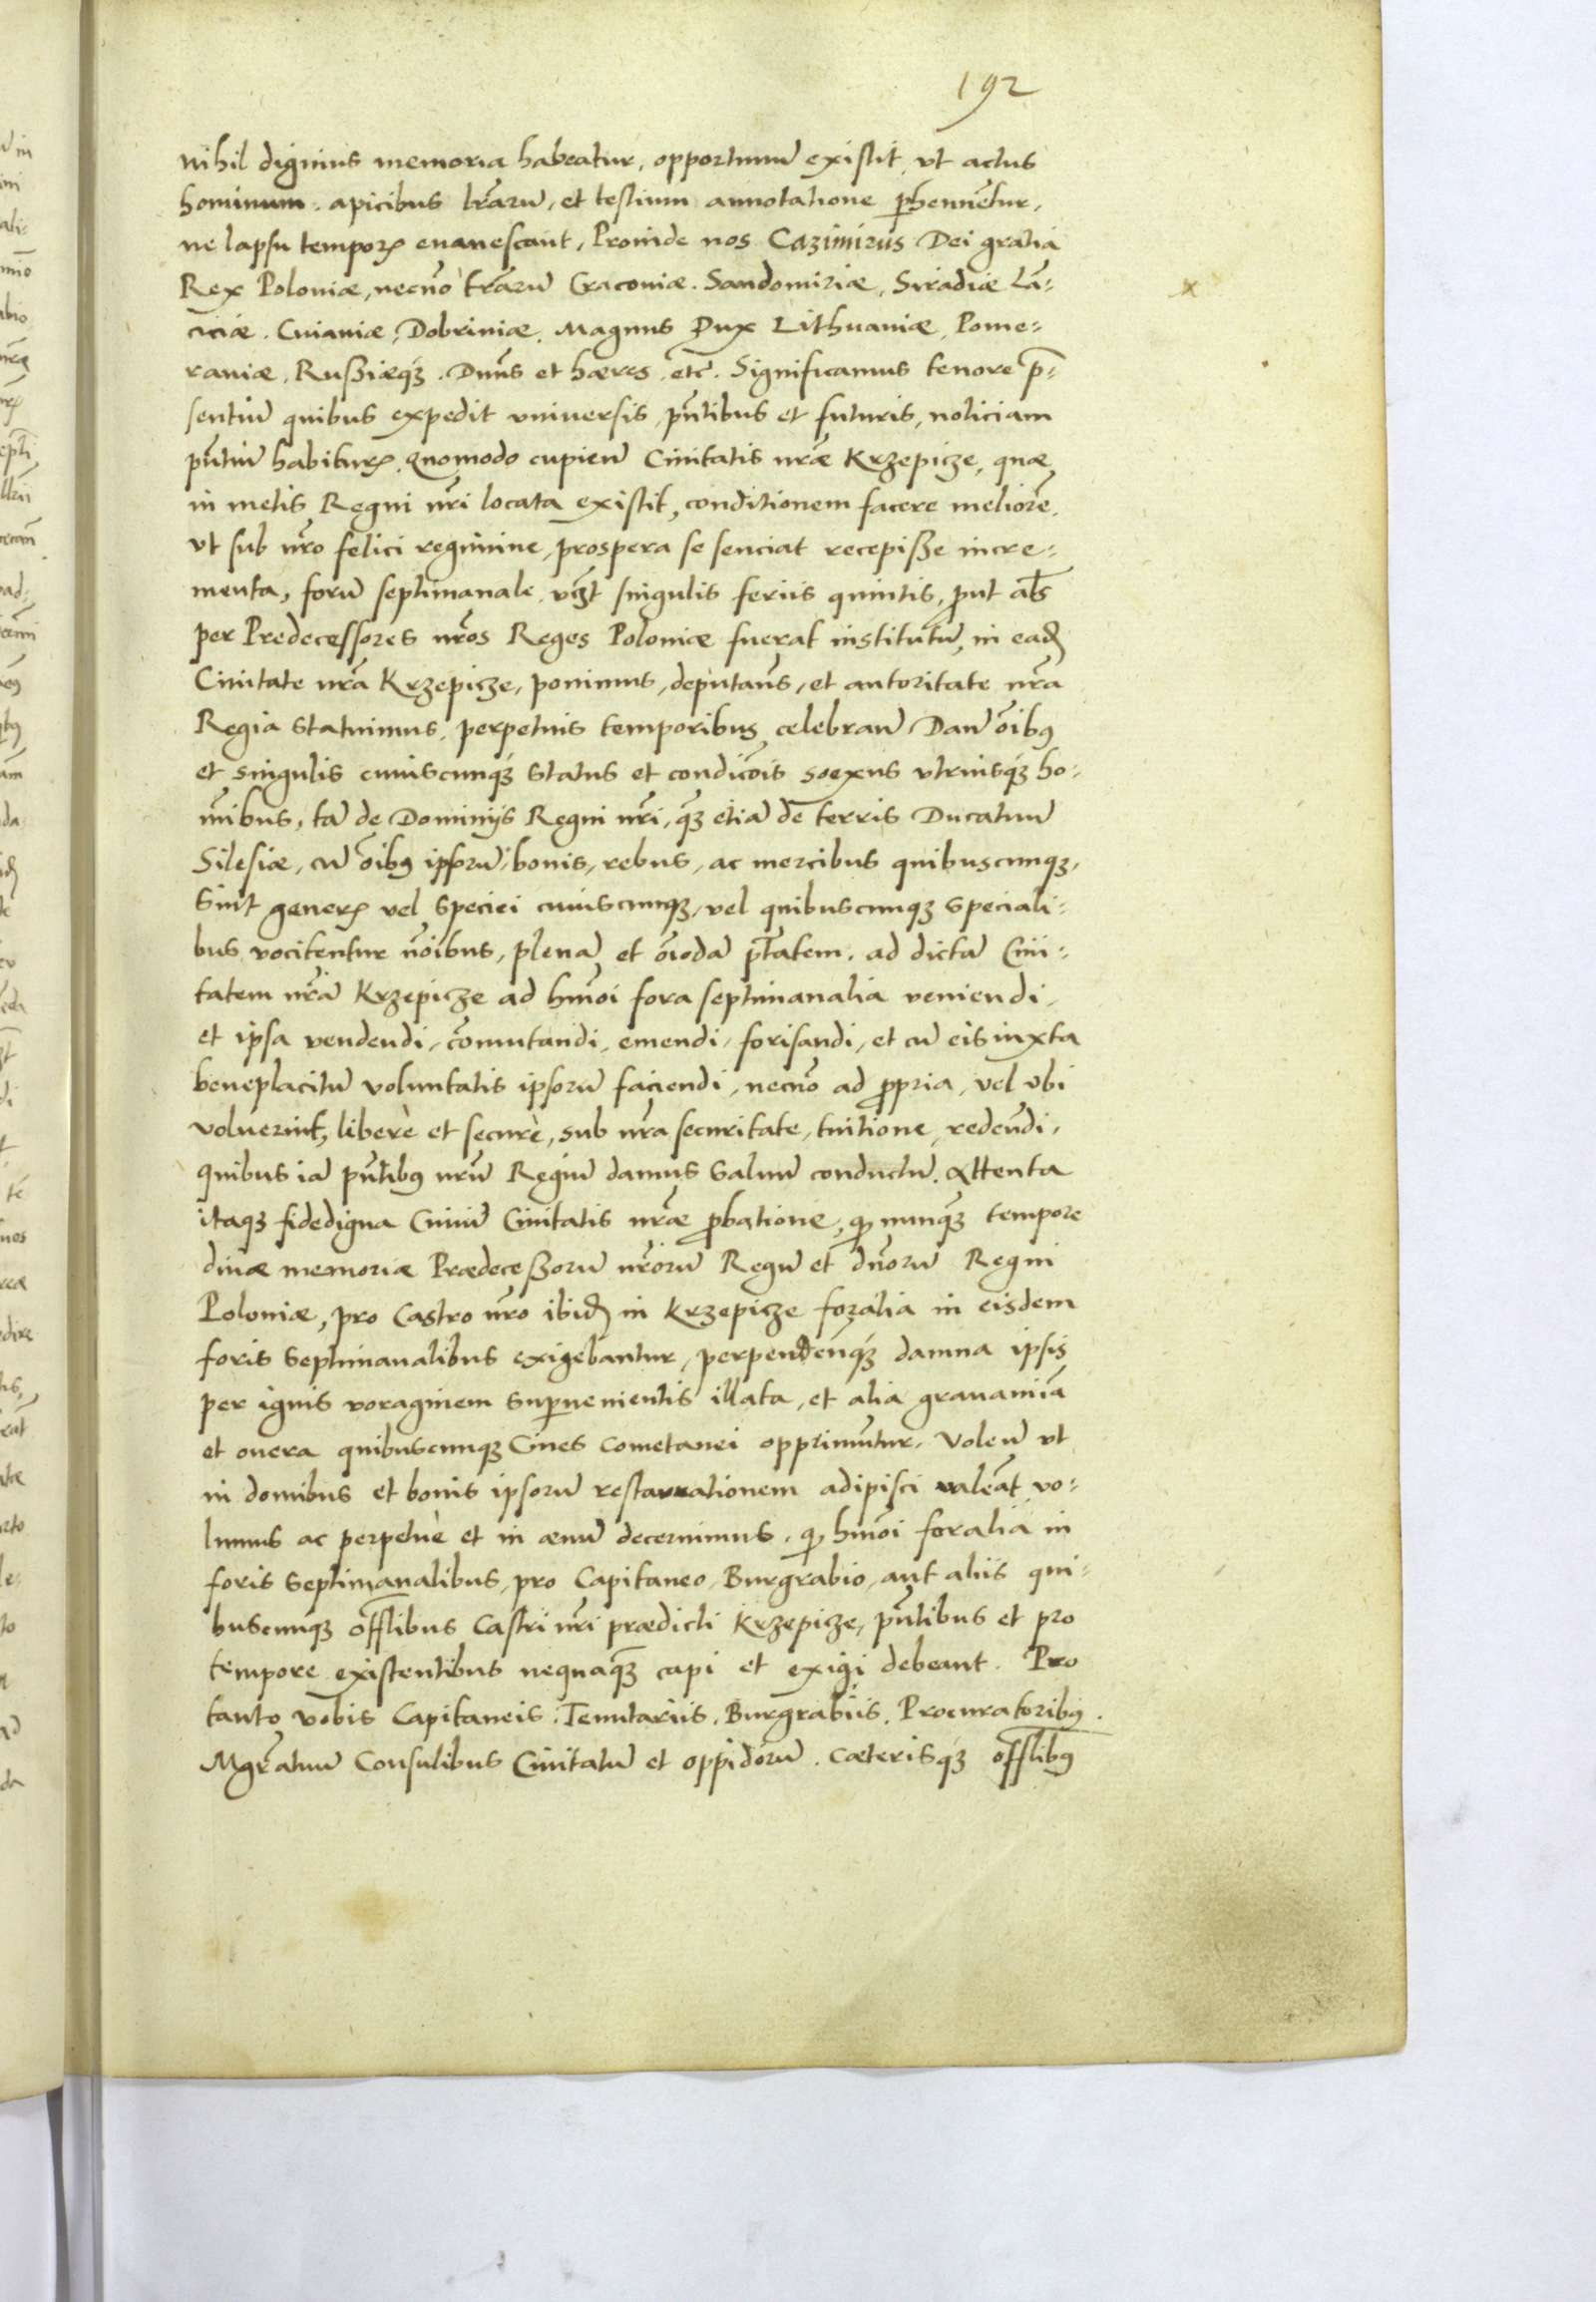 192
nihil dignius memoria habeatur, opportunũ existit, vt actus
hominum. apicibus lr̃arũ, et testium annotatione ꝑhennẽtur,
ne lapsu temporꝝ euanescant, Proinde nos Cazimirus Dei gratia
Rex Poloniæ, necnõ tr̃arũ Cracouiæ. Sandomiriæ, Siradiæ Lã-
ciciæ. Cuiauiæ, Dobriniæ. Magnus Dux Lithuaniæ, Pome-
raniæ, Rußiæqꝫ. Dnũs et hæres, etc̃. Significamus tenore p̃-
sentiũ quibus expedit vniuersis, pñtibus et futuris, noticiam
pñtiũ habiturꝝ. quomodo cupien̄ Ciuitatis nr̃æ Krzepicze, quæ
in metis Regni nr̃i locata existit, conditionem facere meliorẽ,
vt sub nr̃o felici regimine, prospera se senciat recepiße incre-
menta, forũ septimanale, vꝫt singulis feriis quintis, ꝓut al̃s
per Predecessores nr̃os Reges Poloniæ fuerat institutũ, in eaď
Ciuitate nr̃a Krzepicze, ponimus, deputam̃s, et autoritate nr̃a
Regia statuimus, perpetuis temporibus celebran̄ Dan̄ oĩbꝰ
et singulis cuiuscunqꝫ status et condicõis soexus vtriusqꝫ ho-
mĩbus, tã de Dominijs Regni nr̃i, qꝫ etiã de terris Ducatuũ
Silesiæ, cũ oĩbꝰ ipsorũ bonis, rebus, ac mercibus quibuscunqꝫ,
sint generꝝ vel speciei cuiuscunqꝫ, vel quibuscunqꝫ speciali-
bus vocitentur nõibus, plenã et oĩodã ptãtem. ad dictã Ciui-
tatem nr̃ã Krzepicze ad hmõi fora septimanalia veniendi,
et ipsa vendendi, cõmutandi, emendi, forisandi, et cũ eis iuxta
beneplacitũ voluntatis ipsorũ faciendi, necnõ ad ꝓpria, vel vbi
voluerint, liberè et securè, sub nr̃a securitate, tuitione, redeũdi,
quibus iã pñtibꝰ nr̃ũ Regiũ damus saluũ conductũ. Attenta
itaqꝫ fidedigna Ciuiũ Ciuitatis nr̃æ ꝓbatione, qꝫ nunqꝫ tempore
diuæ memoriæ Prædeceßorũ nr̃orũ Regũ et dñorũ Regni
Poloniæ, pro Castro nr̃o ibiď in Krzepicze foralia in eisdem
foris septimanalibus exigebantur, perpendẽnqꝫ damna ipsis
per ignis voraginem suꝑuenientis illata, et alia grauamiã
et onera quibuscunqꝫ Ciues cometanei opprimũtur. Volen̄ vt
in domibus et bonis ipsorũ restaurationem adipisci valeãt, vo-
lumus ac perpetuè et in æuũ decernimus, qꝫ hmõi foralia in
foris septimanalibus, pro Capitaneo, Burgrabio, aut aliis qui-
buscunqꝫ offl̃ibus Castri nr̃i prædicti Krzepicze, pñtibus et pro
tempore existentibus nequaqꝫ capi et exigi debeant. Pro
tanto vobis Capitaneis. Tenutariis. Burgrabiis. Procuratoribꝰ.
Mgr̃atuũ Consulibus Ciuitatũ et oppidorũ. cæterisqꝫ offl̃ibꝰ